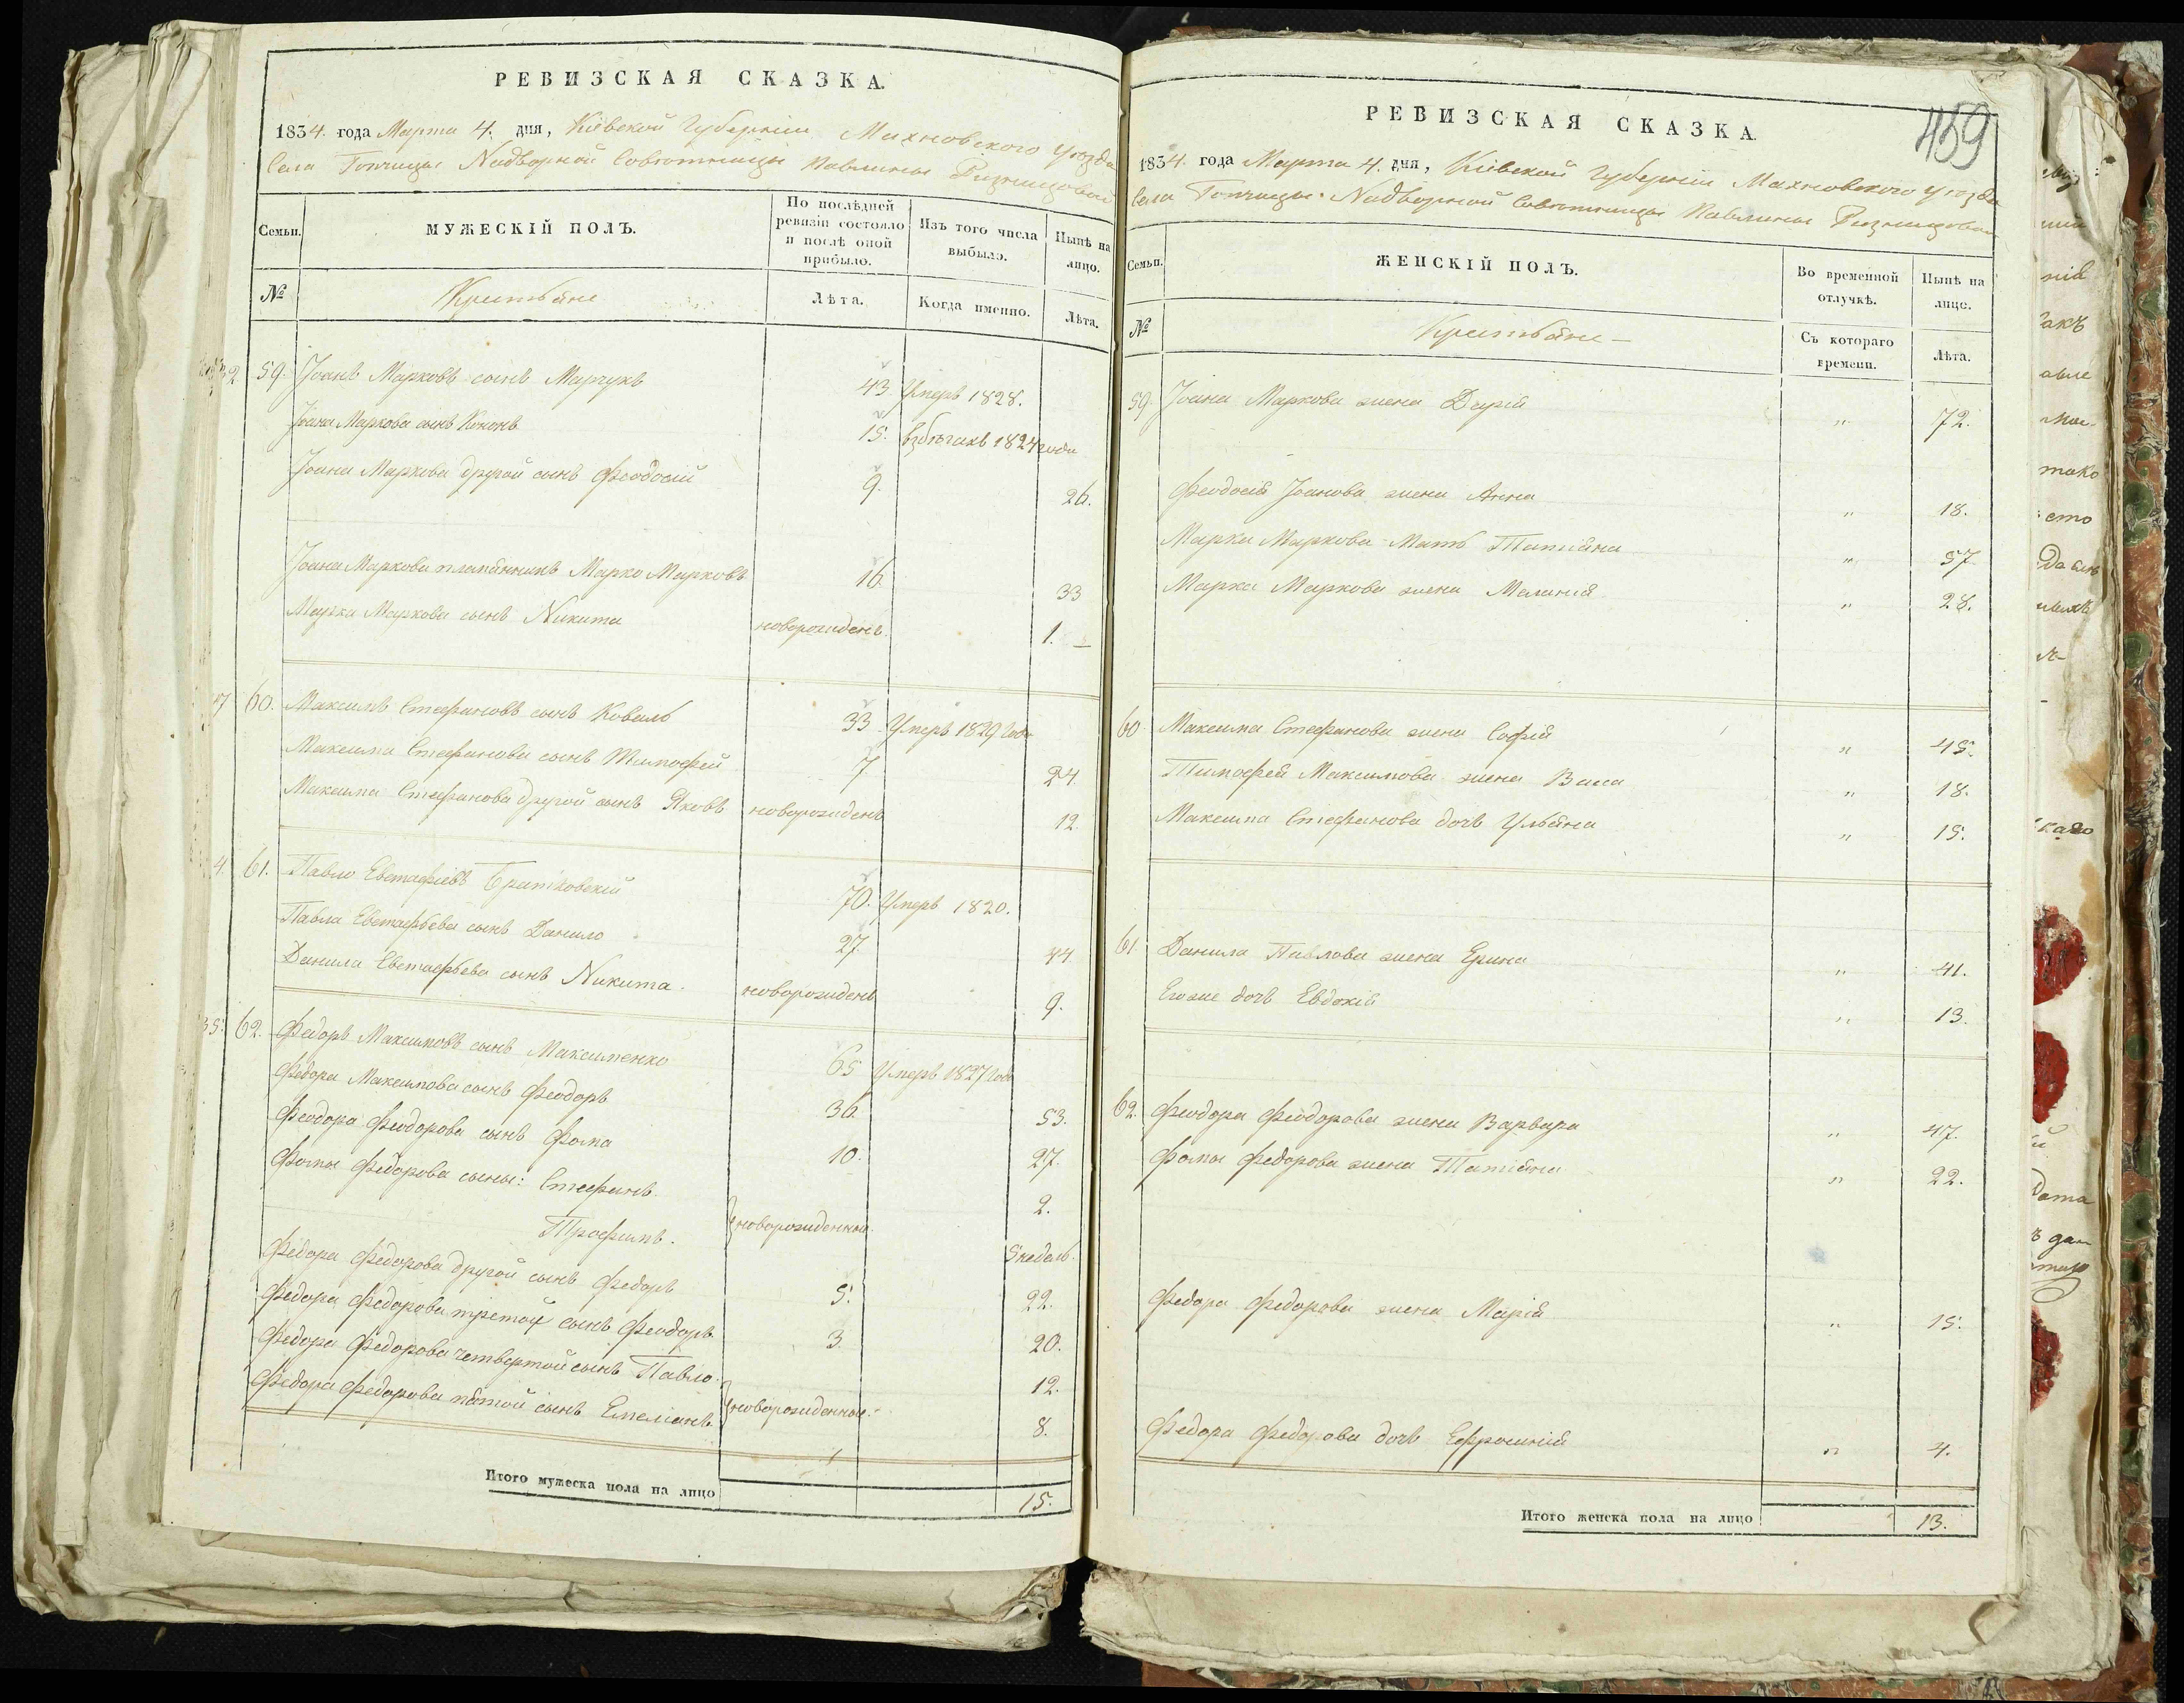 РЕВИЗСКАЯ СКАЗКА.
1834. года Марта 4. дня, Кіевской Губерніи Махновского уезда
Села Топчицы Надворной Совютницы Павлины Ризнищовой
Семьи.
МУЖЕСКІЙ ПОЛЪ.
По послѣдней ревизіи состояло и послѣ оной прибыло.
Изъ того числа выбыло.
Нынѣ на лицо.
№
Крестьяне
Лѣта.
Когда именно.
Лѣта.
59. Іоанъ Марковъ сынъ Марчукъ 43 Умеръ 1828.
Іоана Маркова сынъ Кононъ 15. взбѣгахъ 1824 года
Іоана Маркова другой сынъ Феодосій 9. 26.
Іоана Маркова племянникъ Марко Марковъ 16. 33
Марка Маркова сынъ Никита новорожденъ. 1. –
60. Максимъ Стефановъ сынъ Коваль 33 Умеръ 1829 года
Максима Стефанова сынъ Тимофей 7 24
Максима Стефанова другой сынъ Яковъ новорожденъ 12.
4. 61. Павло Евстафіевъ 70. Умеръ 1820.
Павла Евстафьева сынъ Данило 27. 44
Данила Евстафьева сынъ Никита. новорожденъ 9.
35. 62. Федоръ Максимовъ сынъ Максименко 65 Умеръ 1827 года
Федора Максимова сынъ Феодоръ 36 53.
Феодора Феодорова сынъ Фома 10. 27.
Фомы Федорова сыны: Стефанъ 2.
Трофимъ. новорожденны. 5 недель.
Федора Федорова другой сынъ Федоръ 5. 22.
Федора Федорова третой сынъ Феодоръ 3 20.
Федора Федорова четвертой сынъ Павло. 12.
Федора Федорова пятой сынъ Емеліанъ новорожденные. 8.
Итого мужеска пола на лицо 15.
459
РЕВИЗСКАЯ СКАЗКА.
1834. года Марта 4. дня, Кіевской Губерніи Махновского уезда
Села Топчицы Надворной Совютницы Павлины Ризнищовой
Семьи.
ЖЕНСКІЙ ПОЛЪ.
Во временной отлучкѣ.
Нынѣ на лице.
№
Крестьяне –
Съ котораго времени.
Лѣта.
59. Іоана Маркова жена Дарія " 72.
Феодосія Іоанова жена Анна " 18.
Марка Маркова Мать Татіяна " 57
Марка Маркова жена Меланія " 28.
60 Максима Стефанова жена Софія " 45.
Тимофея Максимова жена Васа " 18.
Максима Стефанова дочь Ульяна " 15.
61 Данила Павлова жена Ерина " 41.
Егоже дочь Евдокія " 13.
62. Феодора Феодорова жена Варвара " 47.
Фомы Федорова жена Татіяна " 22.
Федора Федорова жена Марія " 15.
Федора Федорова дочь Ефросинія " 4.
Итого женска пола на лицо 13.